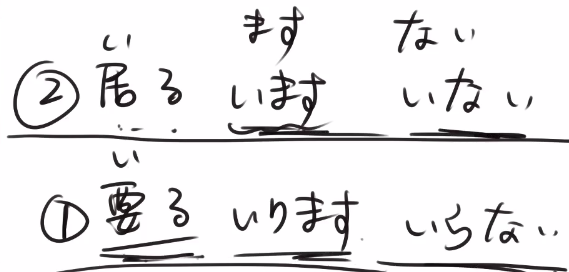 い ます ない
② 居る います いない
い
① 要る いります いらない